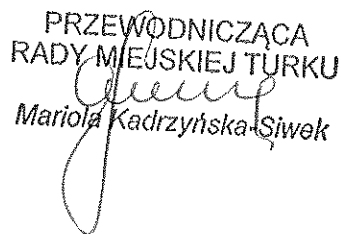 PRZEWODNICZĄCA
RADY MIEJSKIEJ TURKU
Mariola Kadrzyńska-Siwek